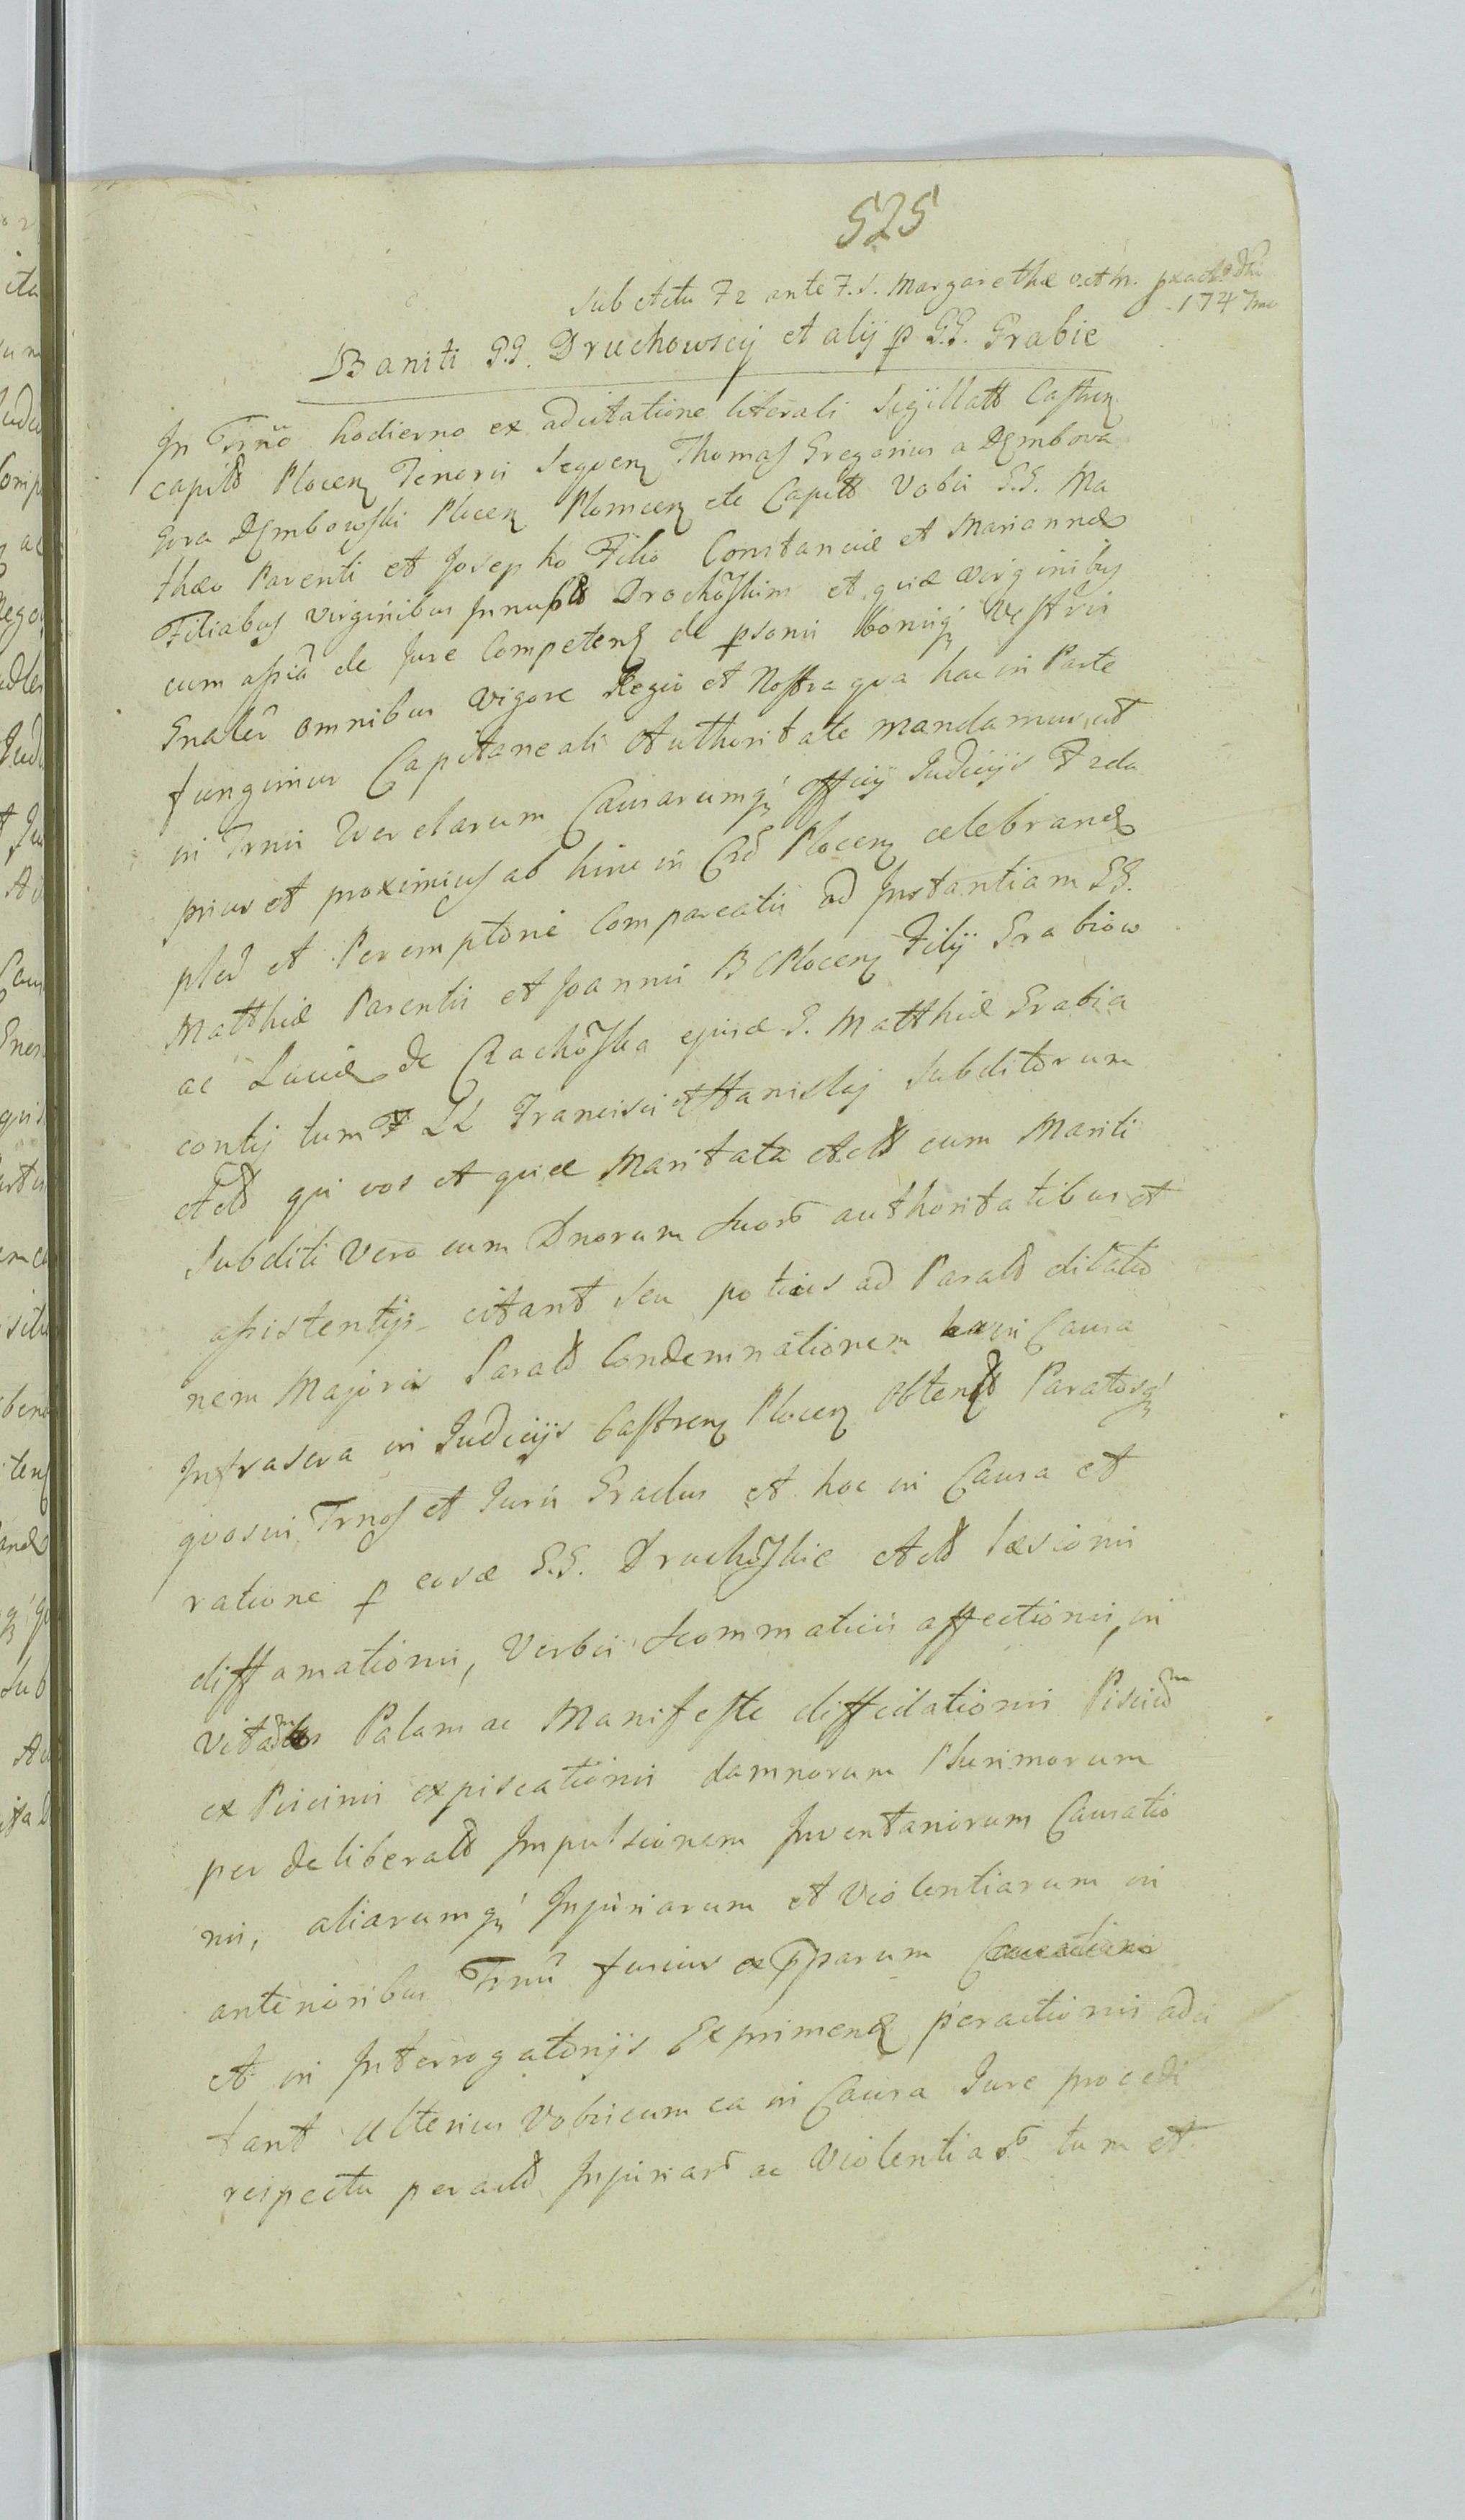 525
Sub Actu F2 ante F. S. Margarethæ V. et M.
1747mo
Baniti G.G. Druchowscy et alij p G.G. Grabie
In Trño hodierno ex adcitatione literali Sigillatt Castren
capitt Plocen Tenoris Seqven Thomas Gregorius a Dęmbova
Gora Dęmbowski Plocen Plomcen etc Capitt Vobis G.G. Ma
thæo Parenti et Josepho Filio Constanciæ et Mariannæ
Filiabus virginibus Innuptt Drochoskim et quæ virginibus
cum assiã de Jure Competen de psonis bonisq vestris
Gnaler omnibus Vigore Regia et Nostra qva hac in Parte
fungimur Capitaneali Authoritate mandamus ut
in Trnis Querelarum Causarumq officij Judicijs Feda
prius et proximius ab hinc in Cas Plocen celebrand
pler et Peremptorie Compareatis ad Instantiam G.G.
Matthiæ Parentis et Joannis B C Plocen Filij Grabiow
ac Luciæ de Czachoska ejusd G. Matthiæ Grabia
contis tum LL Francisci et Stanislaj Subditorum
Actt qui vos et quæ Maritata Actt cum Mariti
Subditi Vero cum Dnorum Suor authoritatibus et
assistentijs citant seu potius ad Paratt citatio
nem Majoris Paratt Condemnationem in Causa
Infrascra in Judicijs Castren Plocen Obtent Paratosq
qvosvis Trnos et Juris Gradus et hoc in Causa et
ratione p eosd G.G. Druchoskie Actt læsionis
diffamationis, Verbis Scommaticis affectionis, in
vitam Palam ac Manifeste diffidationis Piscium
ex Piscinis expiscationis damnorum Plurimorum
per deliberatt Impulsionem Inventariorum Causatio
nis, aliarumq Injuriarum et Violentiarum in
anterioribus Trnis fusius exppssarum
et in Interrogatorijs Exprimend peractionis adci
tant Ulterius Vobiscum ea in Causa Jure procedi
respectu peractt Injuriar ac Violentiar tum et